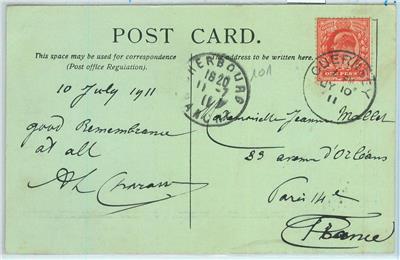 POST CARD.
This space may be used for correspondence
(Post office Regulation).
The address to be written here.
10 July 1911
good Remembrance
at all
CHERBOURG
18 20
11 -7
GUERNSEY
JY 10
11
Mademoiselle Jeanne
83 avenue d'Orléans
Paris 14e
France